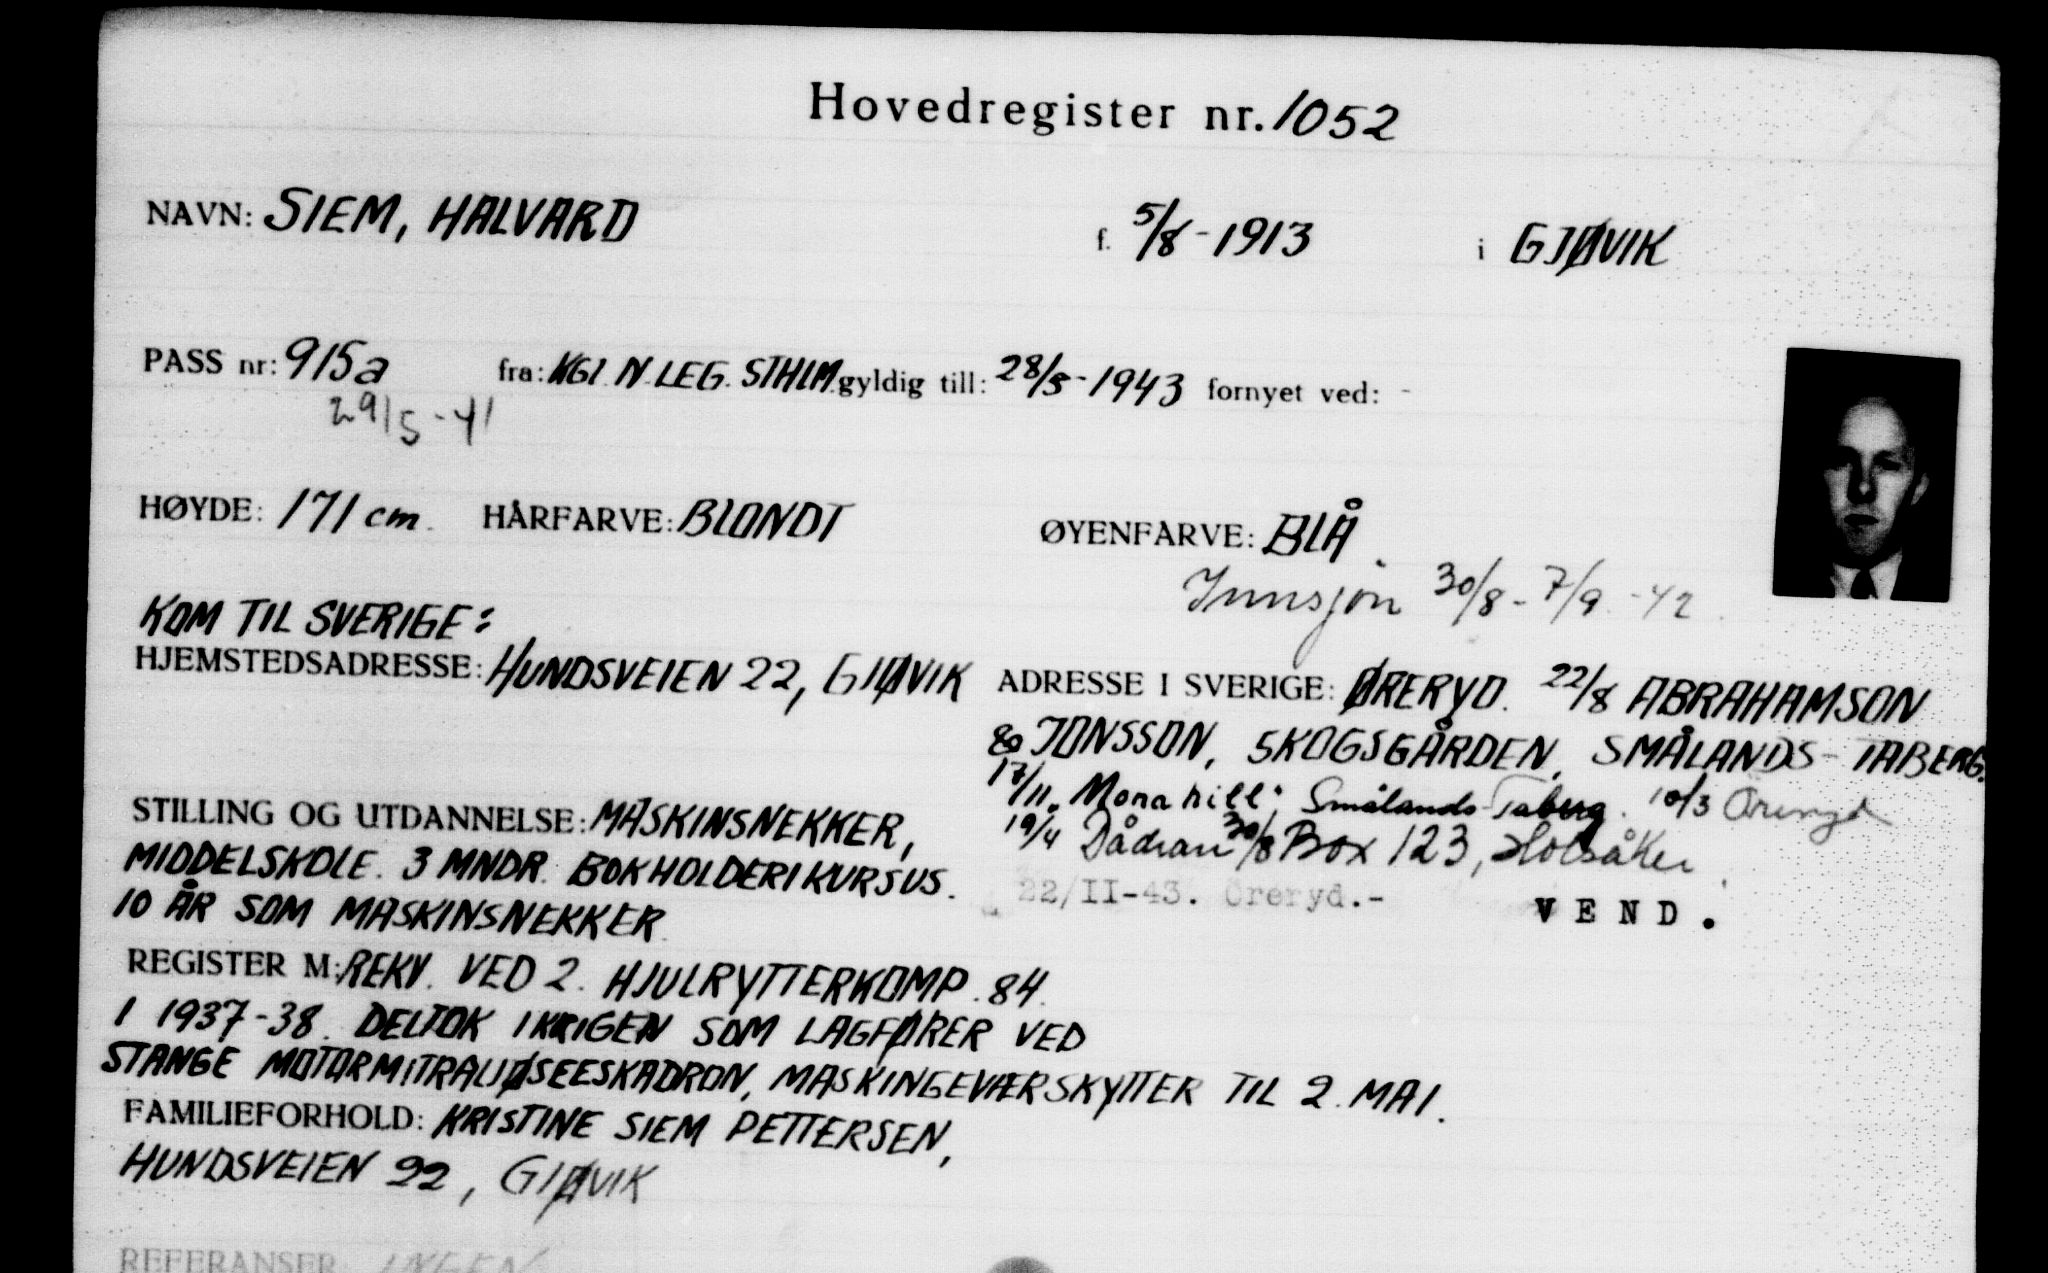 Hovedregister nr. 1052
NAVN: SIEM, HALVARD f. 5/8-1913 i GJØVIK
PASS nr: 915a fra: KGL. N. LEG. STHLM. gyldig till: 28/5-1943 fornyet ved: -
29/5-41
HØYDE: 171 cm. HÅRFARVE: BLONDT ØYENFARVE: BLÅ.
Innsjön 30/8-7/9-42.
KOM TIL SVERIGE:
HJEMSTEDSADRESSE: HUNDSVEIEN 22, GJØVIK
ADRESSE I SVERIGE: ØRERYD. 22/8 ABRAHAMSON
& JONSSON, SKOGSGÅRDEN, SMÅLANDS-TABERG.
17/11. Mona hill; Smålands-Taberg. 10/3 Öreryd
19/4 Dådran 30/8 Box 123, Holsåker.
22/II-43. Öreryd.-
VEND.
STILLING OG UTDANNELSE: MASKINSNEKKER,
MIDDELSKOLE. 3 MNDR. BOKHOLDERIKURSUS.
10 ÅR SOM MASKINSNEKKER.
REGISTER M: REKV. VED 2. HJULRYTTERKOMP. 84.
I 1937-38. DELTOK I KRIGEN SOM LAGFØRER VED
STANGE MOTORMITRALJØSEESKADRON, MASKINGEVÆRSKYTTER TIL 2. MAI.
FAMILIEFORHOLD: KRISTINE SIEM PETTERSEN,
HUNDSVEIEN 22, GJØVIK
REFERANSER: INGEN